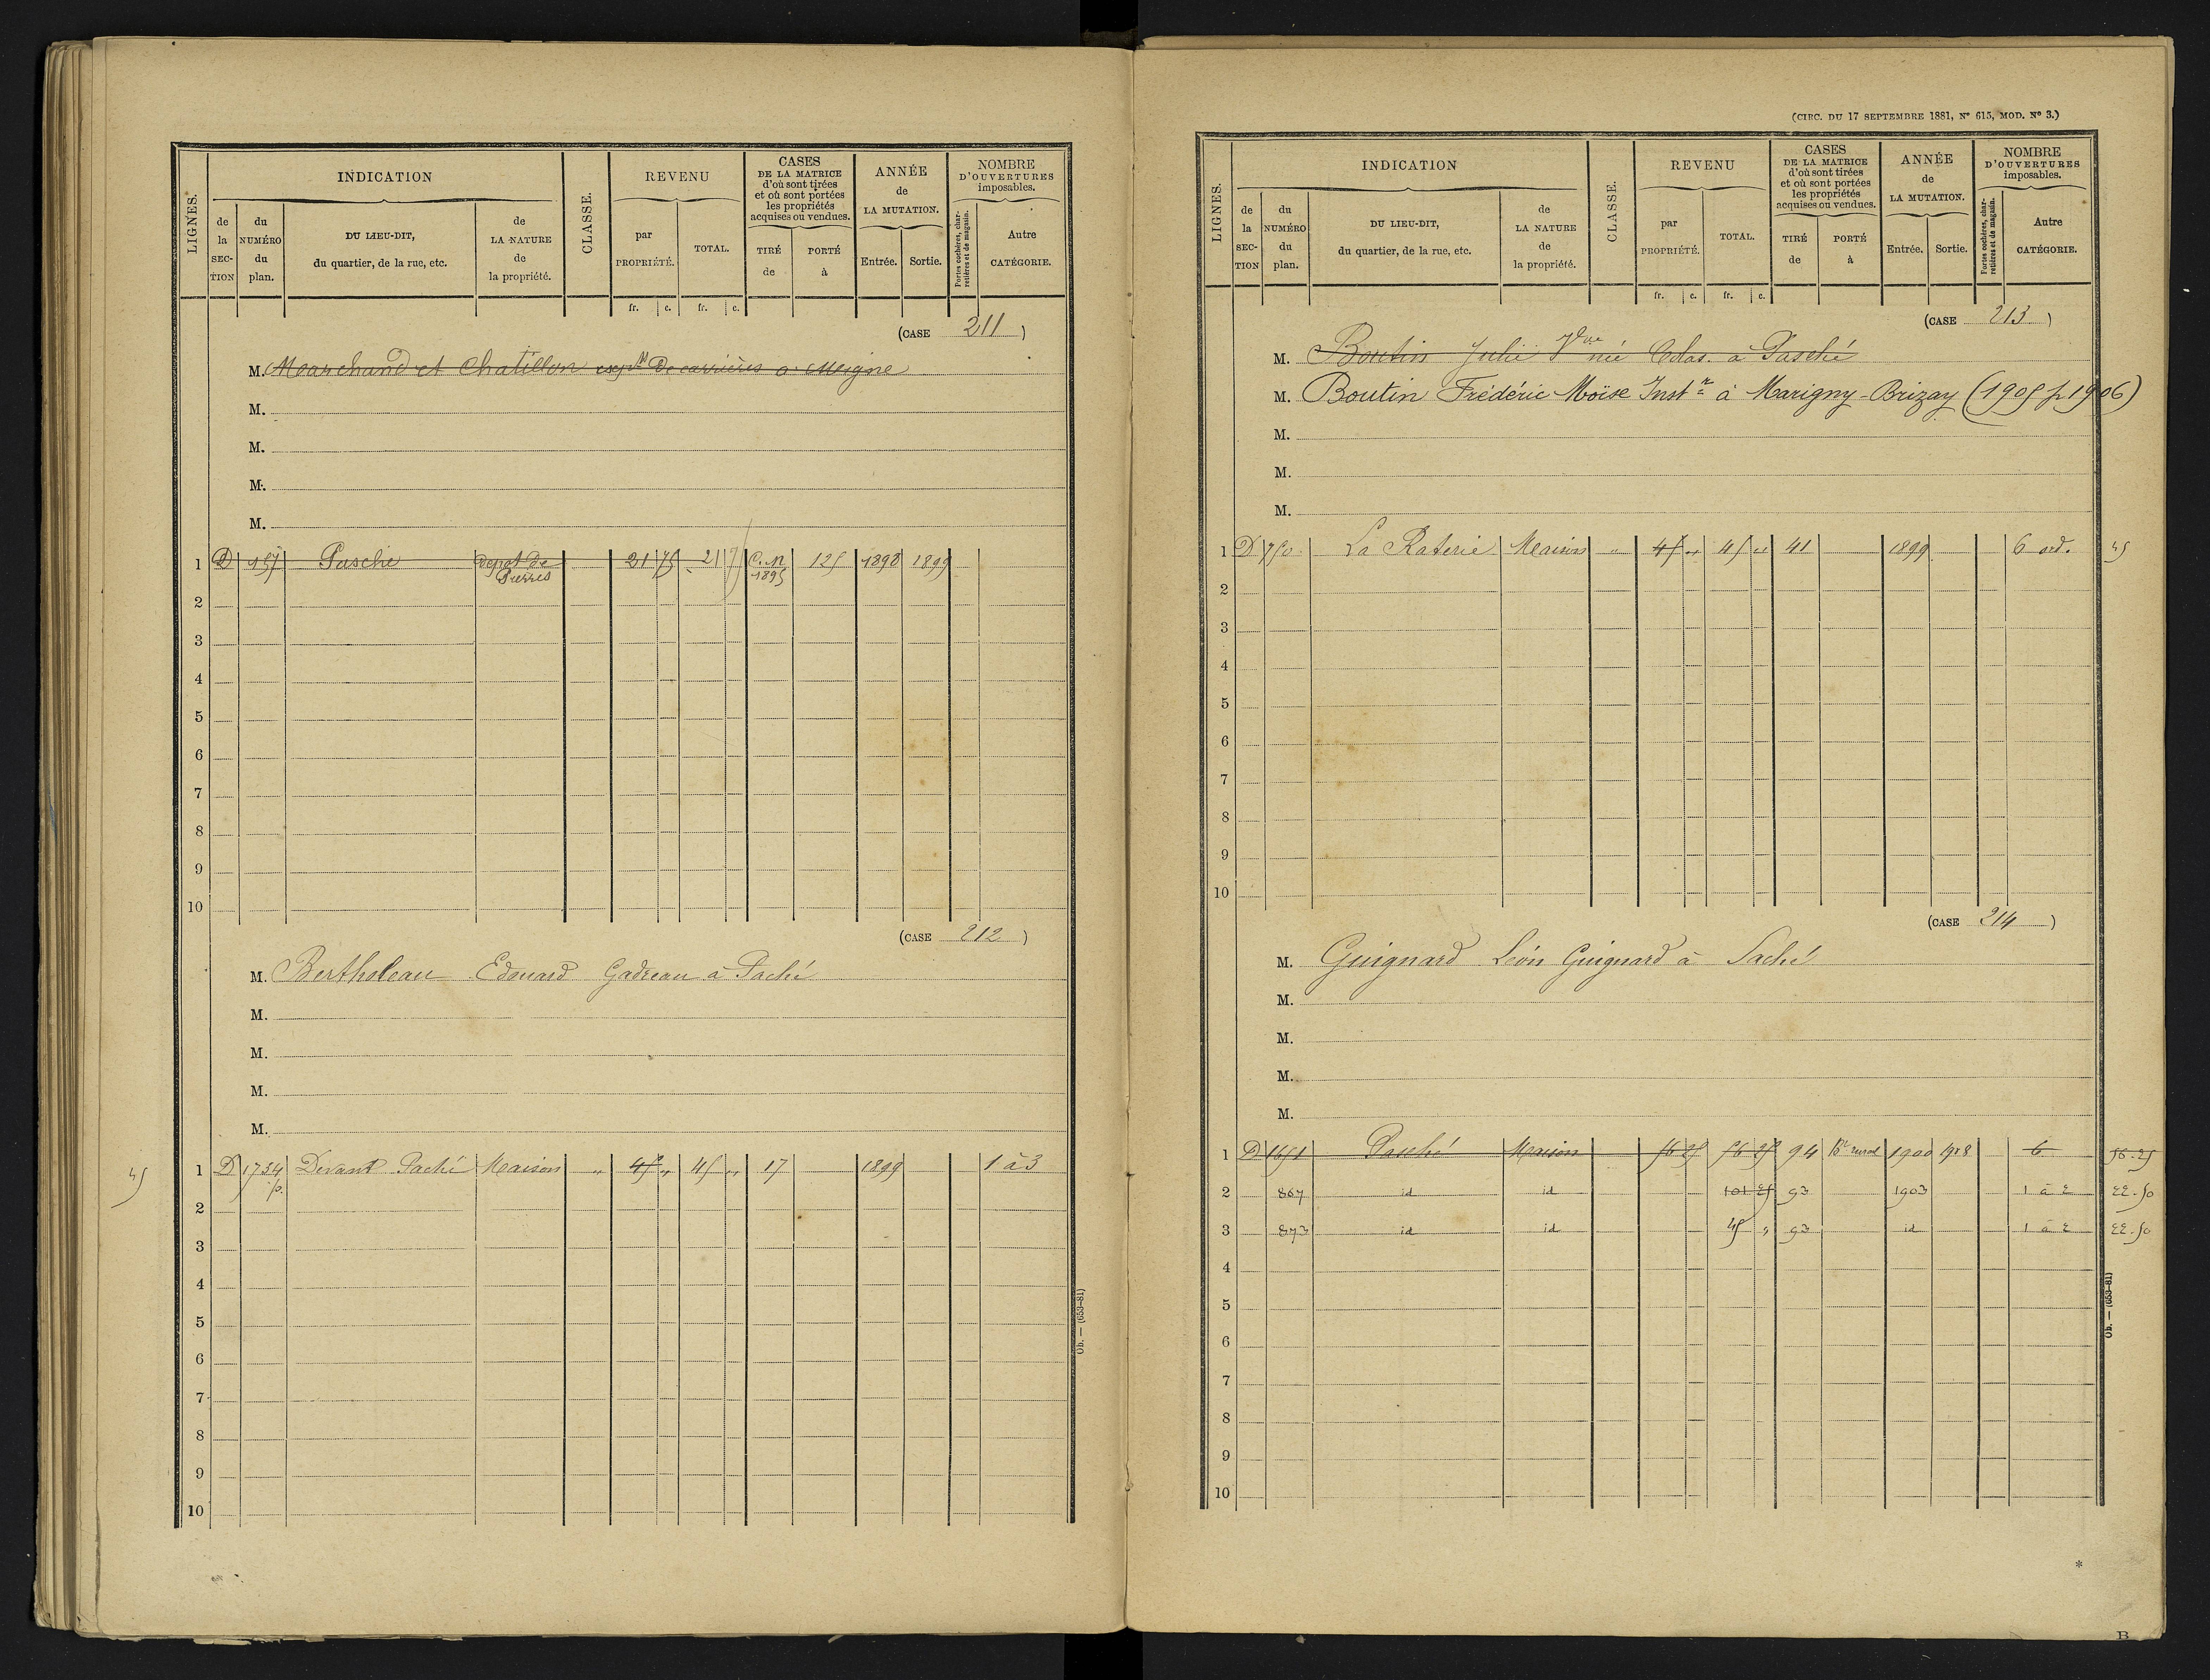 LIGNES.
INDICATION
CLASSE.
REVENU
CASES
DE LA MATRICE
d'où sont tirées
et où sont portées
les propriétés
acquises ou vendues.
ANNÉE
de
LA MUTATION.
NOMBRE
D'OUVERTURES
imposables.
de la SECTION
du NUMÉRO du plan.
DU LIEU-DIT,
du quartier, de la rue, etc.
de LA NATURE de la propriété.
par PROPRIÉTÉ.
TOTAL.
TIRÉ de
PORTÉ à
Entrée.
Sortie.
Portes cochères, charretières et de magasin.
Autre CATÉGORIE.
fr. c. fr. c.
(CASE 211)
M. Marchand et Chatillon de carrières a
M.
M.
M.
M.
1 D 157 Pasché depot de Pierres 21 75 21 75 C.N 1895 125 1898 1899
2
3
4
5
6
7
8
9
10
(CASE 212)
M. Bertholeau Edouard Gadreau a Paché
M.
M.
M.
M.
45 1 D 1734 p. Devant Paché Maison " 45 " 45 " 17 1899 1 à 3
2
3
4
5
6
7
8
9
10
Ob. — (653-81)
(CIRC. DU 17 SEPTEMBRE 1881, N° 615, MOD. N° 3.)
LIGNES.
INDICATION
CLASSE.
REVENU
CASES
DE LA MATRICE
d'où sont tirées
et où sont portées
les propriétés
acquises ou vendues.
ANNÉE
de
LA MUTATION.
NOMBRE
D'OUVERTURES
imposables.
de la SECTION
du NUMÉRO du plan.
DU LIEU-DIT,
du quartier, de la rue, etc.
de LA NATURE de la propriété.
par PROPRIÉTÉ.
TOTAL.
TIRÉ de
PORTÉ à
Entrée.
Sortie.
Portes cochères, charretières et de magasin.
Autre CATÉGORIE.
fr. c. fr. c.
(CASE 213)
M. Boutin Julie Vve née Colas. a Pasché
M. Boutin Frédéric Moïse Instr à Marigny-Brizay (1905 p 1906)
M.
M.
M.
1 D 750 La Raterie Maison " 45 " 45 " 41 1899 6 ord. 45
2
3
4
5
6
7
8
9
10
(CASE 214)
M. Guignard Léon Guignard à Saché
M.
M.
M.
M.
1 D 1651 Pasché Maison 56 25 56 25 94 Bt rural 1900 1908 6 56.25
2 867 id id 101 25 93 1903 1 à 2 22.50
3 873 id id 45 " 93 id 1 à 2 22.50
4
5
6
7
8
9
10
Ob. — (653-81)
*
B